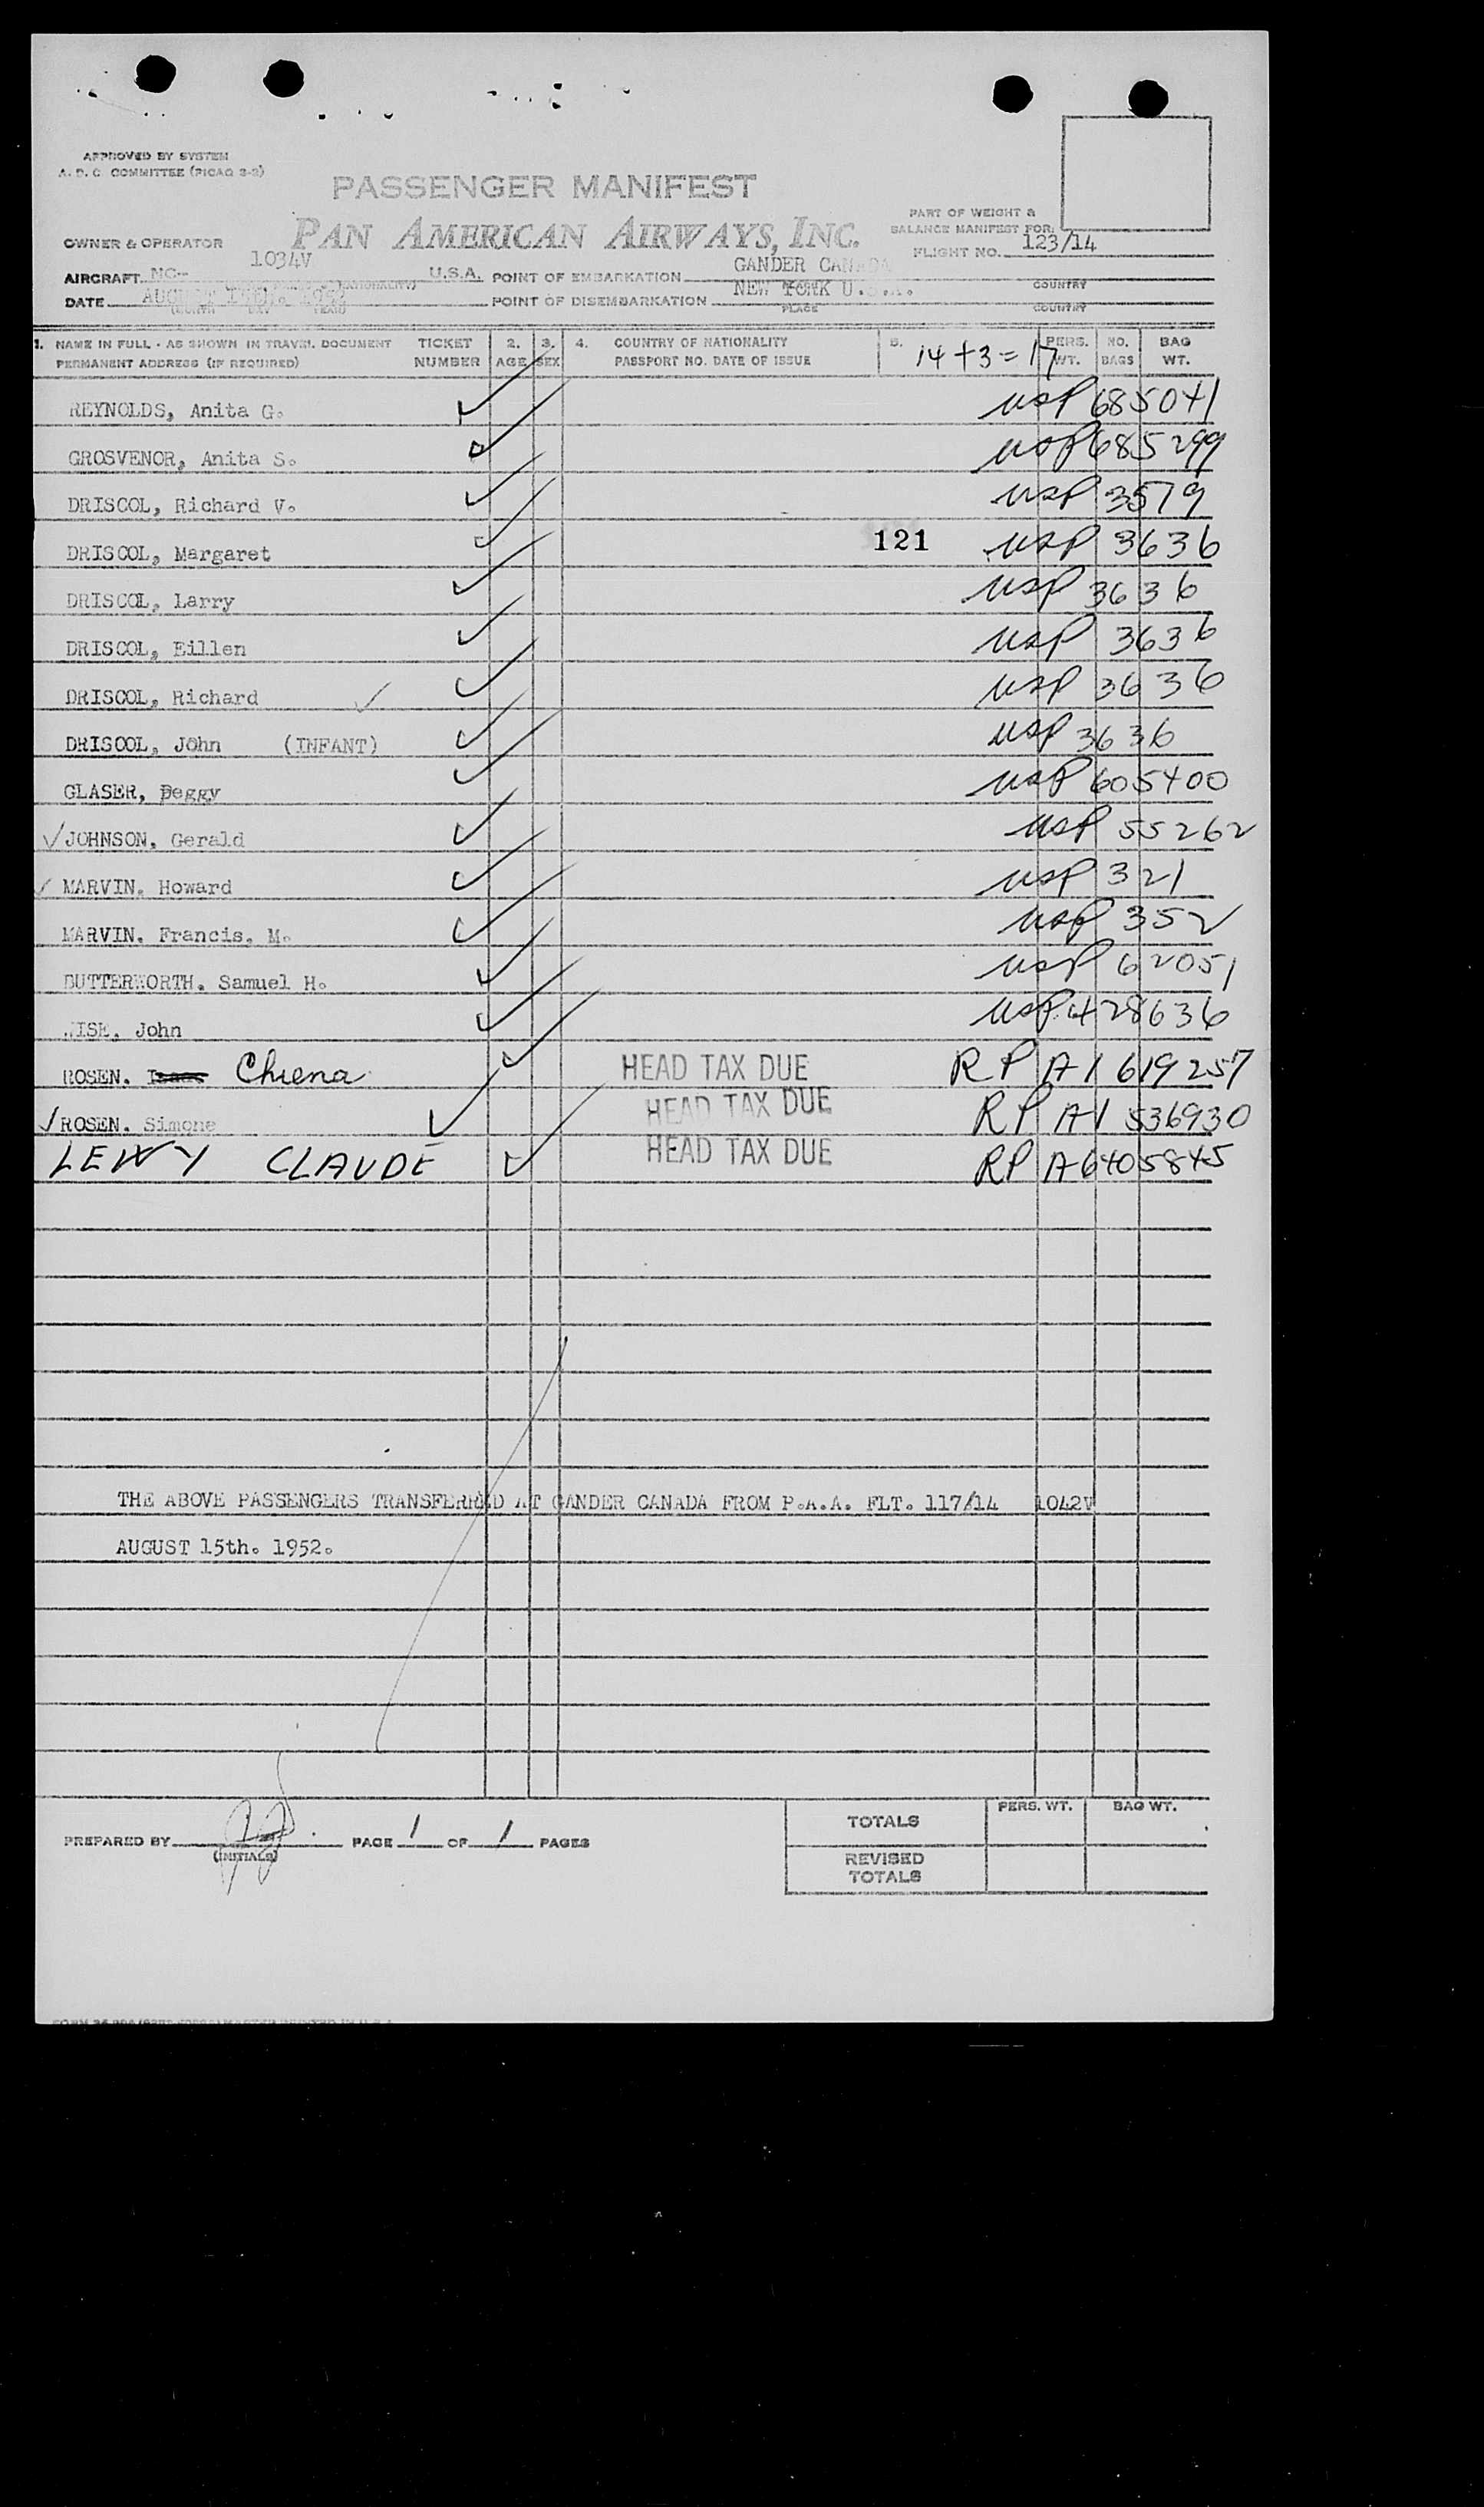 APPROVED BY SYSTEM
A. D. C. COMMITTEE (PICAO 2-2)
PASSENGER MANIFEST
PAN AMERICAN AIRWAYS, INC.
PART OF WEIGHT &
BALANCE MANIFEST FOR:
FLIGHT NO. 123/14
OWNER & OPERATOR
AIRCRAFT NC- 1034V U.S.A. POINT OF EMBARKATION GANDER CANADA
COUNTRY
DATE AUGUST 15th. 1952 POINT OF DISEMBARKATION NEW YORK U.S.A.
(MONTH DAY YEAR) PLACE COUNTRY
1. NAME IN FULL - AS SHOWN IN TRAVEL DOCUMENT TICKET 2. 3. 4. COUNTRY OF NATIONALITY 5. 14 + 3 = 17 PERS. NO. BAG
PERMANENT ADDRESS (IF REQUIRED) NUMBER AGE SEX PASSPORT NO. DATE OF ISSUE WT. BAGS WT.
REYNOLDS, Anita G. ✓ USP 685041
GROSVENOR, Anita S. ✓ USP 685299
DRISCOL, Richard V. ✓ USP 3579
DRISCOL, Margaret ✓ 121 USP 3636
DRISCOL, Larry ✓ USP 3636
DRISCOL, Eillen ✓ USP 3636
DRISCOL, Richard ✓ ✓ USP 3636
DRISCOL, John (INFANT) ✓ USP 3636
GLASER, Peggy ✓ USP 605400
✓ JOHNSON, Gerald ✓ USP 55262
✓ MARVIN. Howard ✓ USP 321
MARVIN. Francis. M. ✓ USP 352
BUTTERWORTH. Samuel H. ✓ USP 62051
WISE. John ✓ USP 428636
ROSEN. Chiena ✓ HEAD TAX DUE RP A1 619257
✓ ROSEN. Simone ✓ HEAD TAX DUE RP A1 536930
LEWY CLAUDE ✓ HEAD TAX DUE RP A6405845
THE ABOVE PASSENGERS TRANSFERRED AT GANDER CANADA FROM P.A.A. FLT. 117/14 1042V
AUGUST 15th. 1952.
PREPARED BY PAGE 1 OF 1 PAGES
(INITIALS)
TOTALS PERS. WT. BAG WT.
REVISED
TOTALS